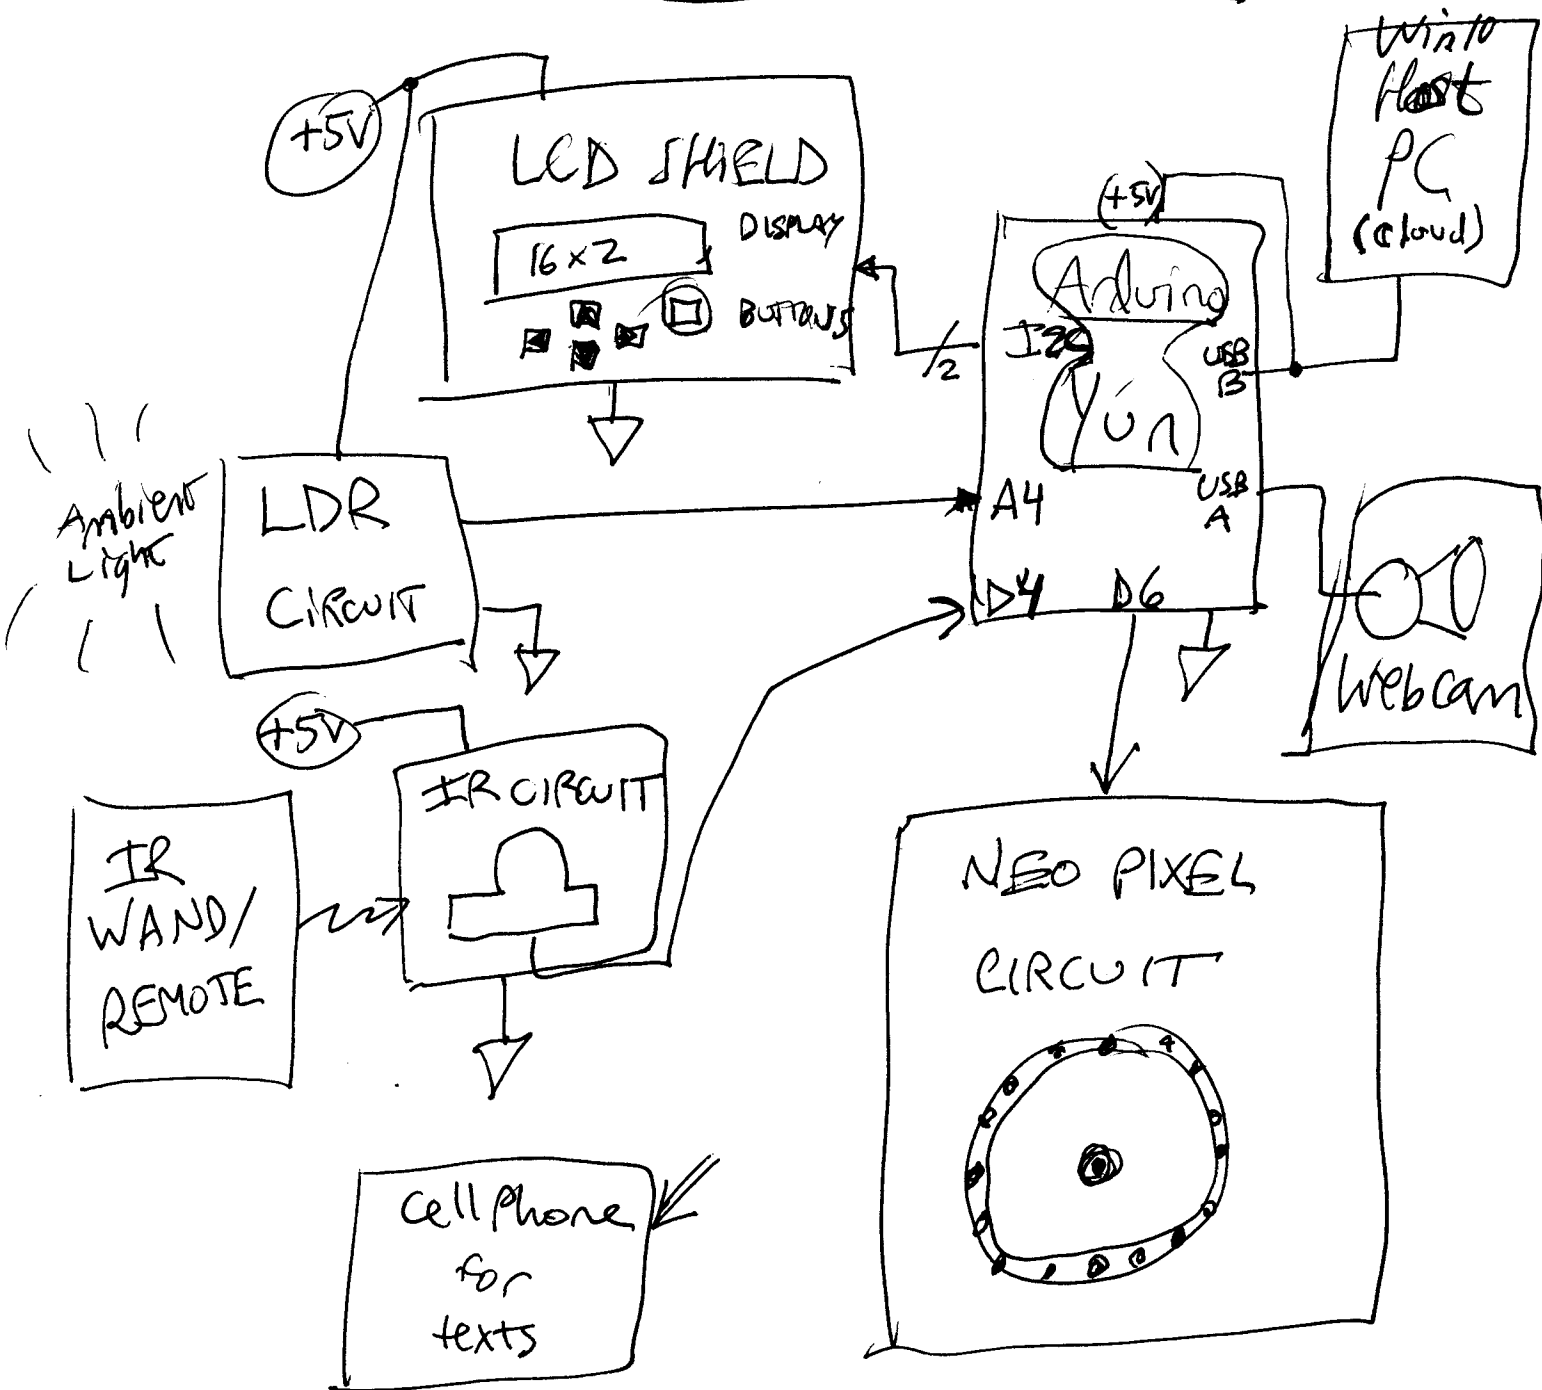 +5V
LCD SHIELD
DISPLAY
16x2
BUTTONS
Win10
Host
PC
(cloud)
+5V
Arduino
Yún
I2C
2
USB
B
USB
A
A4
D4
D6
Ambient
Light
LDR
CIRCUIT
Webcam
+5V
IR CIRCUIT
IR
WAND/
REMOTE
NEO PIXEL
CIRCUIT
Cell Phone
for
texts